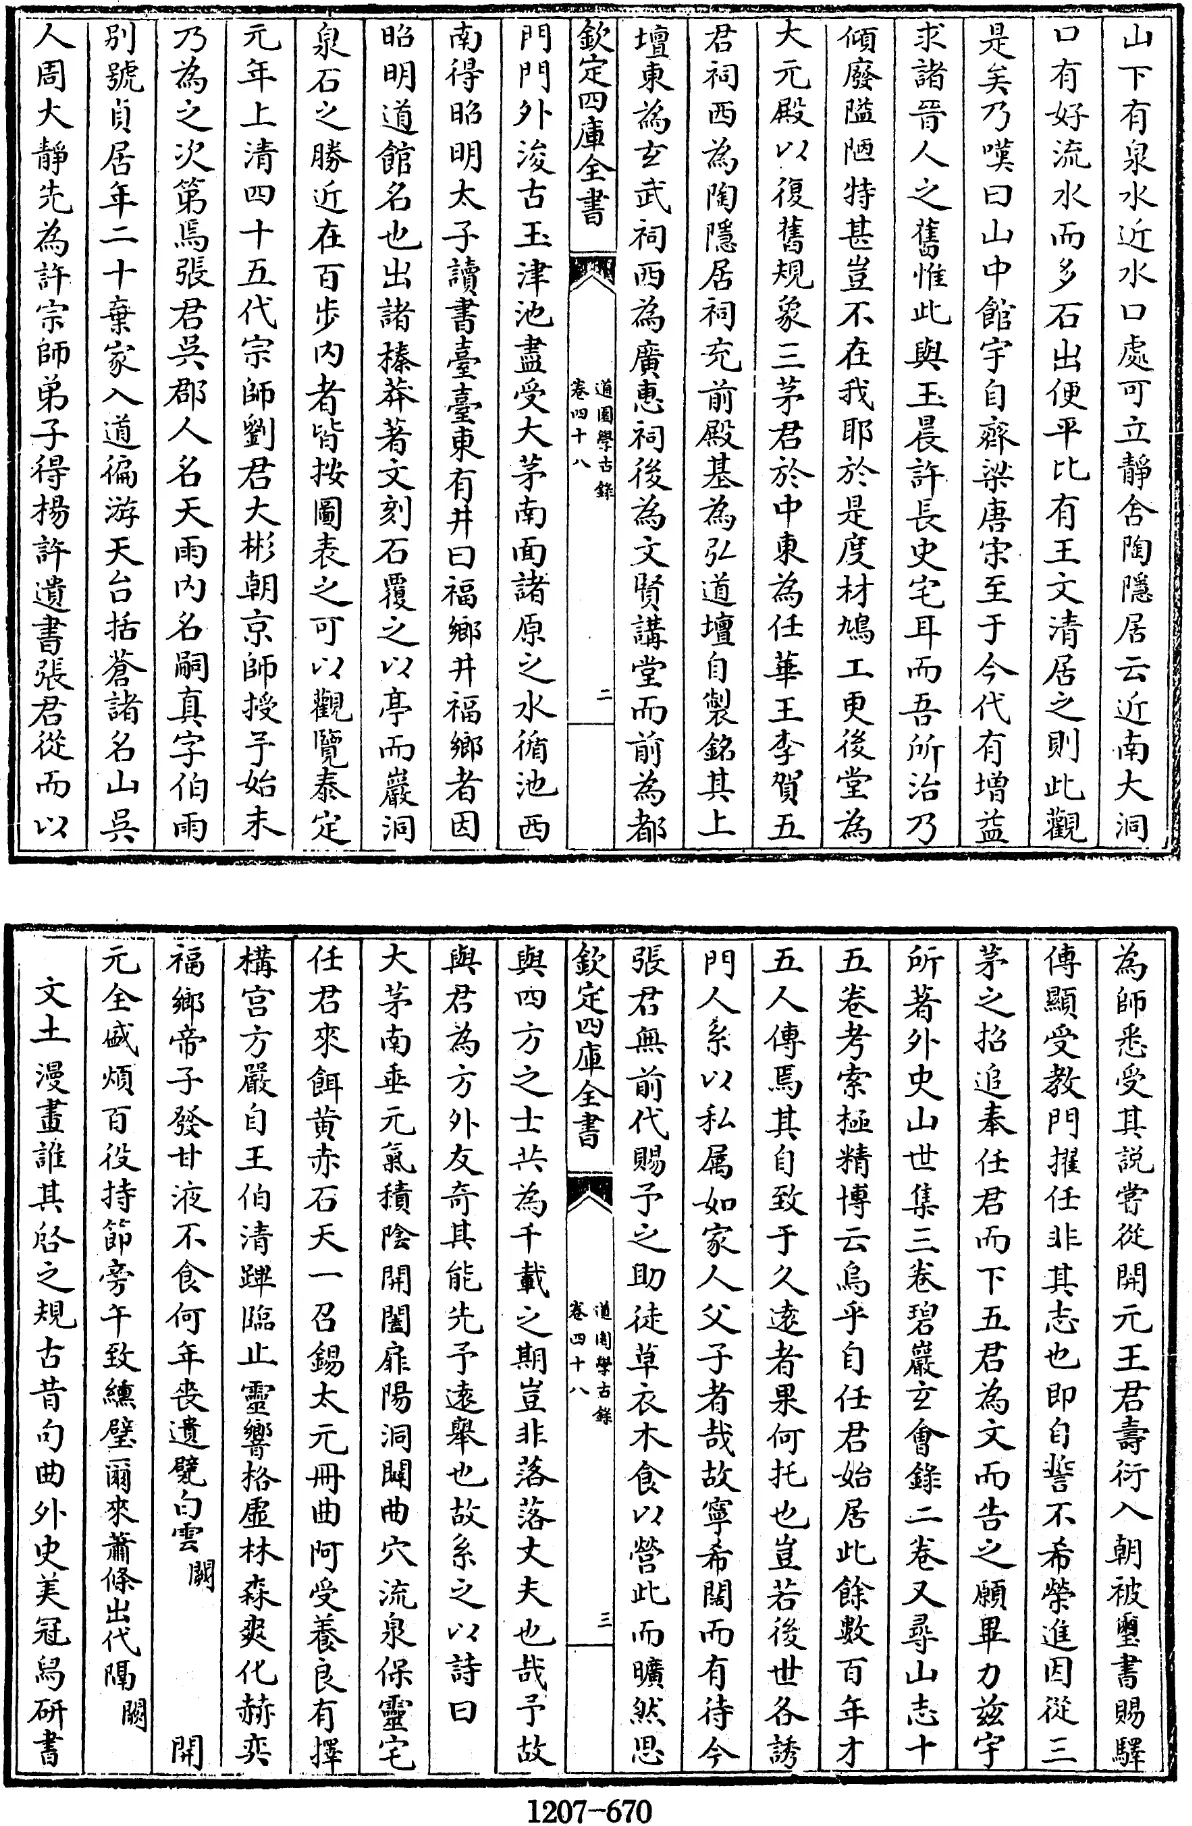 山下有泉水近水口處可立靜舍陶隱居云近南大洞
口有好流水而多石出便平比有王文清居之則此觀
是矣乃嘆曰山中館宇自齊梁唐宋至于今代有增益
求諸晉人之舊惟此與玉晨許長史宅耳而吾所治乃
傾廢隘陋特甚豈不在我耶於是度材鳩工更後堂為
大元殿以復舊規象三茅君於中東為任華王李賀五
君祠西為陶隱居祠充前殿基為弘道壇自製銘其上
壇東為玄武祠西為廣惠祠後為文賢講堂而前為都
欽定四庫全書
道園學古錄
卷四十八
二
門門外浚古玉津池盡受大茅南面諸原之水循池西
南得昭明太子讀書臺臺東有井曰福鄉井福鄉者因
昭明道館名也出諸榛莽著文刻石覆之以亭而巖洞
泉石之勝近在百步内者皆按圖表之可以觀覽泰定
元年上清四十五代宗師劉君大彬朝京師授予始末
乃為之次第焉張君吳郡人名天雨内名嗣真字伯雨
別號貞居年二十棄家入道徧游天台括蒼諸名山吳
人周大靜先為許宗師弟子得楊許遺書張君從而以
為師悉受其説嘗從開元王君壽衍入朝被璽書賜驛
傳顯受教門擢任非其志也即自誓不希榮進因從三
茅之招追奉任君而下五君為文而告之願畢力兹宇
所著外史山世集三卷碧巖玄會錄二卷又尋山志十
五卷考索極精博云烏乎自任君始居此餘數百年才
五人傳焉其自致于久遠者果何托也豈若後世各誘
門人系以私属如家人父子者哉故寧希闊而有待今
張君無前代賜予之助徒草衣木食以營此而曠然思
欽定四庫全書
道園學古錄
卷四十八
三
與四方之士共為千載之期豈非落落丈夫也哉予故
與君為方外友奇其能先予遠舉也故系之以詩曰
大茅南垂元氣積陰開闔扉陽洞闢曲穴流泉保靈宅
任君來餌黄赤石天一召錫太元冊曲阿受養良有擇
構宫方嚴自王伯清蹕臨止靈響格虛林森爽化赫奕
福鄉帝子發甘液不食何年喪遺甓白雲闕 開
元全盛煩百役持節旁午致纁璧爾來蕭條出代隔闕
文土漫畫誰其啓之規古昔句曲外史美冠舄研書
1207-670